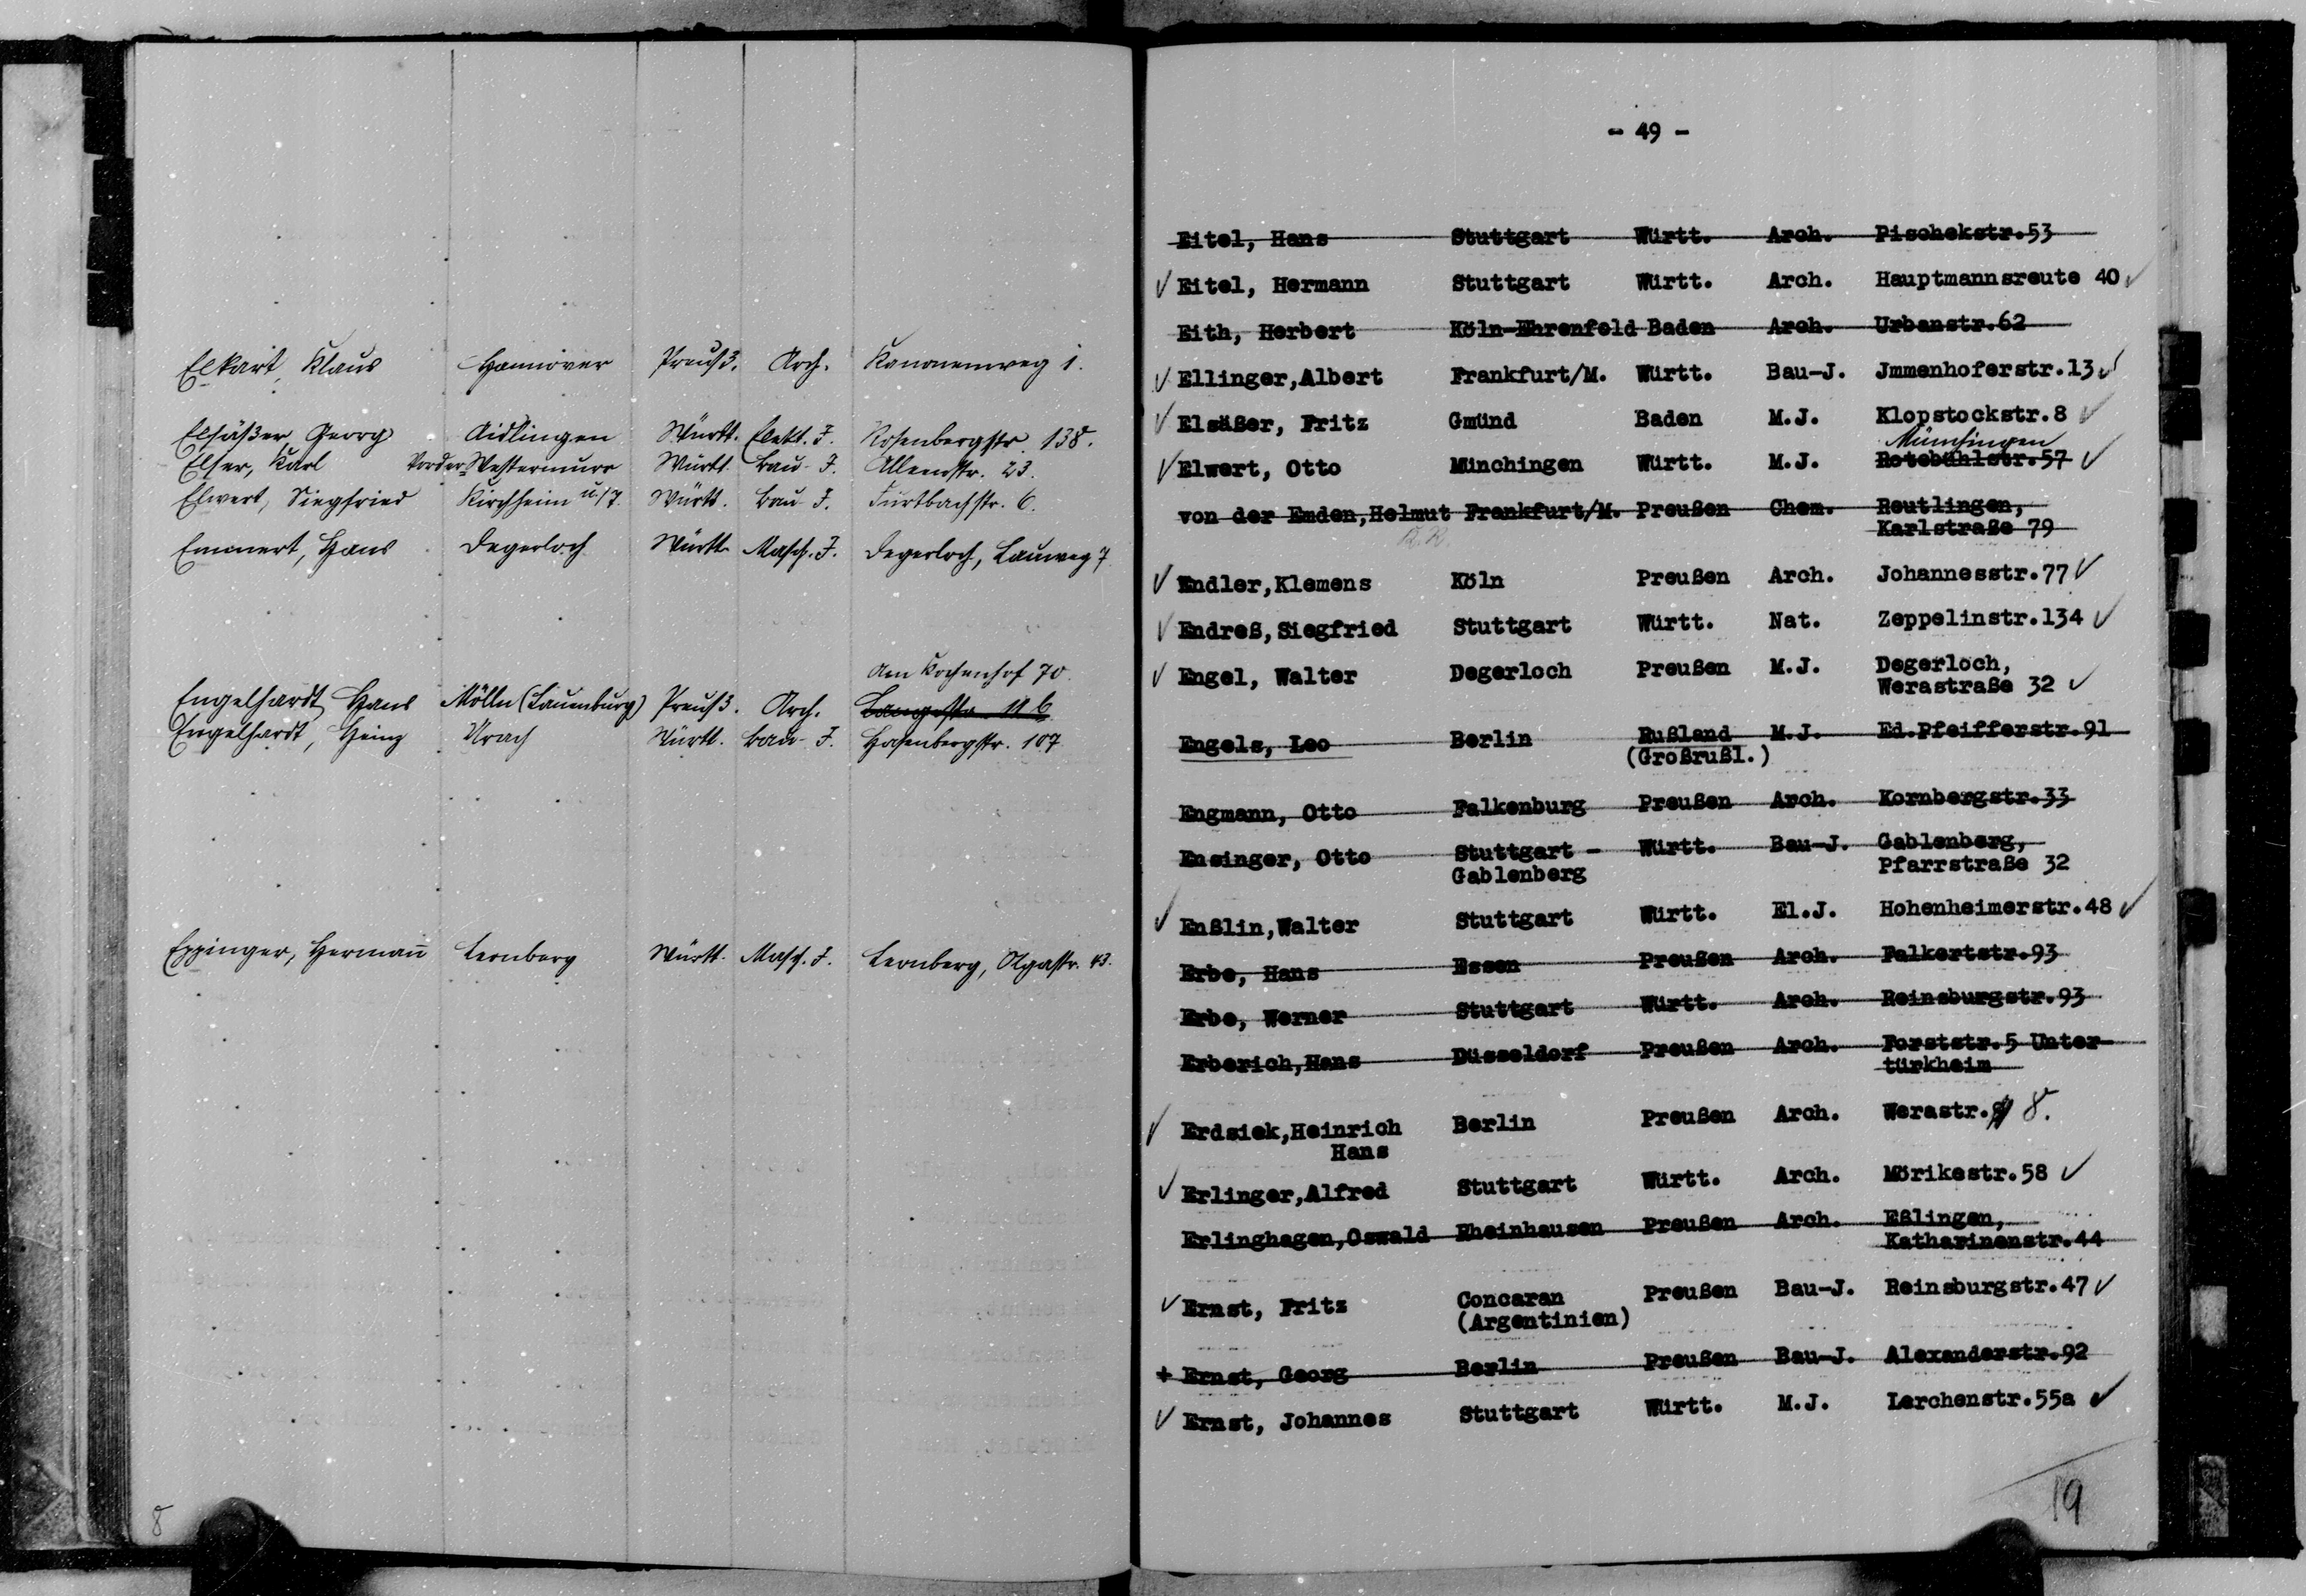 Elkart, Klaus Hannover Preuß. Arch. Kanonenweg 1.
Elsäßer, Georg Aidlingen Württ. Elekt. J. Rosenbergstr. 138.
Elser, Karl Vorder-Westermurr Württ. Bau-J. Alleenstr. 23.
Elwert, Siegfried Kirchheim u./T. Württ. Bau-J. Furtbachstr. 6.
Emmert, Hans Degerloch Württ. Masch. J. Degerloch, Lauweg 7
Am Kochenhof 70.
Engelhardt, Hans Mölln (Lauenburg) Preuß. Arch. Langestr. 11 b
Engelhardt, Heinz Urach Württ. Bau-J. Hasenbergstr. 107
Eppinger, Hermañ Leonberg Württ. Masch. J. Leonberg, Olgastr. 43.
8
- 49 -
Eitel, Hans Stuttgart Württ. Arch. Pischekstr.53
✓ Eitel, Hermann Stuttgart Württ. Arch. Hauptmannsreute 40 ✓
Eith, Herbert Köln-Ehrenfeld Baden Arch. Urbanstr.62
✓ Ellinger,Albert Frankfurt/M. Württ. Bau-J. Jmmenhoferstr.13 ✓
✓ Elsäßer, Fritz Gmünd Baden M.J. Klopstockstr.8 ✓
Münsingen
✓ Elwert, Otto Münchingen Württ. M.J. Rotebühlstr.57 ✓
von der Emden,Helmut Frankfurt/M. Preußen Chem. Reutlingen,
Karlstraße 79
✓ Endler,Klemens Köln Preußen Arch. Johannesstr.77 ✓
✓ Endreß,Siegfried Stuttgart Württ. Nat. Zeppelinstr.134 ✓
✓ Engel, Walter Degerloch Preußen M.J. Degerloch,
Werastraße 32 ✓
Engels, Leo Berlin Rußland M.J. Ed.Pfeifferstr.91
(Großrußl.)
Engmann, Otto Falkenburg Preußen Arch. Kornbergstr.33
Ensinger, Otto Stuttgart - Württ. Bau-J. Gablenberg,
Gablenberg Pfarrstraße 32
✓ Enßlin,Walter Stuttgart Württ. El.J. Hohenheimerstr.48 ✓
Erbe, Hans Essen Preußen Arch. Falkertstr.93
Erbe, Werner Stuttgart Württ. Arch. Reinsburgstr.93
Erberich,Hans Düsseldorf Preußen Arch. Forststr.5 Unter-
türkheim
✓ Erdsiek,Heinrich Berlin Preußen Arch. Werastr. 8.
Hans
✓ Erlinger,Alfred Stuttgart Württ. Arch. Mörikestr.58 ✓
Erlinghagen,Oswald Rheinhausen Preußen Arch. Eßlingen,
Katharinenstr.44
✓ Ernst, Fritz Concaran Preußen Bau-J. Reinsburgstr.47 ✓
(Argentinien)
+ Ernst, Georg Berlin Preußen Bau-J. Alexanderstr.92
✓ Ernst, Johannes Stuttgart Württ. M.J. Lerchenstr.55a ✓
19